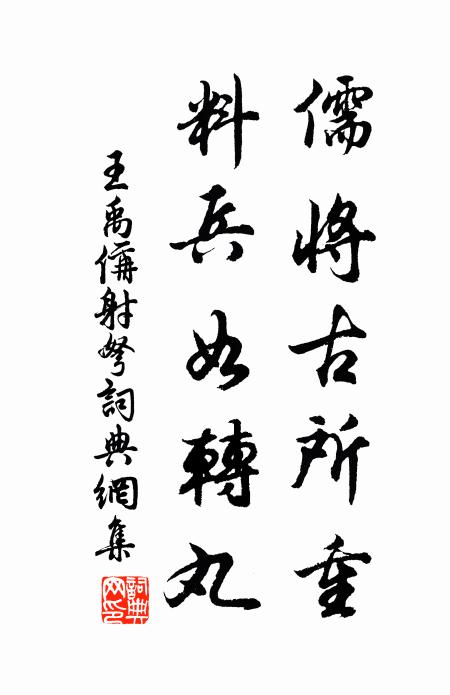 儒將古所重
料兵如轉丸
王禹偁射弩詞典網集
詞典網印